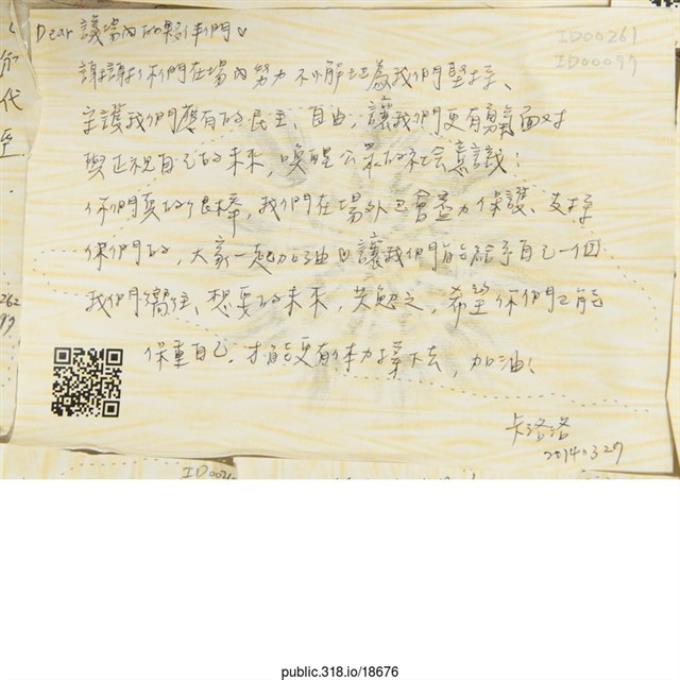 Dear 議場內的夥伴們♡
ID00261
ID00097
謝謝你們在場內努力不懈地為我們堅持、
守護我們應有的民主、自由，讓我們更有勇氣面對
與正視自己的未來，喚醒公眾的社會意識！
你們真的很棒，我們在場外也會盡力保護、支持
你們的，大家一起加油且讓我們能給予自己一個
我們嚮往、想要的未來，共勉之，希望你們也能
保重自己，才能更有体力撐下去，加油！
卡洛洛
20140327
代
262
97
ID0026
public.318.io/18676